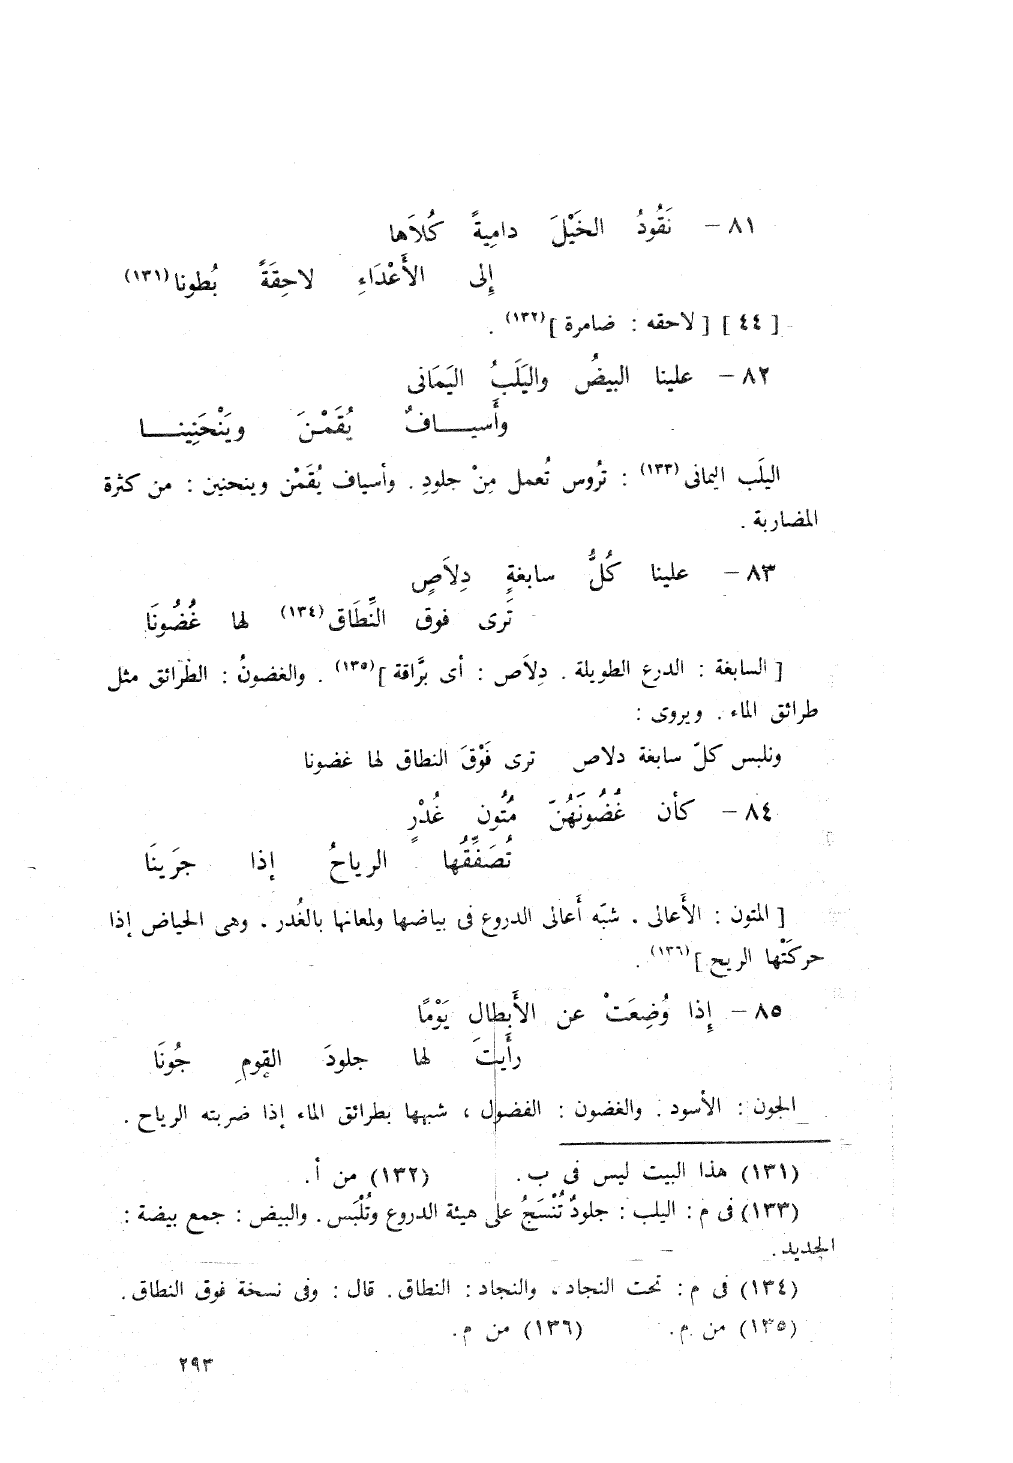 ٨١ – نَقُودُ الخَيْلَ دامِيةً كُلاَها
إلى الأَعْدَاءِ لاحِقَةً بُطونا(١٣١)
[ ٤٤ ] [ لاحقه : ضامرة ](١٣٢) .
٨٢ – علينا البيضُ واليَلَبُ اليَمَانى
وأَسيـــافٌ يُقَمْـنَ ويَنْحَنِينـــا
اليلَب اليمانى(١٣٣) : تُروس تُعمل مِنْ جلودِ . وأسياف يُقمْن وينحنين : من كثرة
المضاربة .
٨٣ – علينا كُلُّ سابغةٍ دِلاَصٍ
تَرى فوق النِّطَاق(١٣٤) لها غُضُونَا
[ السابغة : الدرع الطويلة . دِلاَص : أى برَّاقة ](١٣٥) . والغضونُ : الطرائق مثل
طرائق الماء . ويروى :
ونلبس كلّ سابغة دلاص ترى فَوْقَ النطاق لها غضونا
٨٤ – كأن غُضُونَهُنّ مُتُون غُدْرٍ
تُصَفِّقُها الرياحُ إذا جرَينَا
[ المتون : الأَعالى . شبّه أَعالى الدروع فى بياضها ولمعانها بالغُدر . وهى الحياض إذا
حركَتْها الريح ](١٣٦) .
٨٥ – إِذا وُضِعَتْ عن الأَبطالِ يَوْمًا
رأَيتَ لها جلودَ القومِ جُونَا
الجون : الأسود . والغضون : الفضول ، شبهها بطرائق الماء إذا ضربته الرياح .
(١٣١) هذا البيت ليس فى ب . (١٣٢) من أ .
(١٣٣) فى م : اليلب : جلودٌ تُنْسَجُ على هيئة الدروع وتُلْبَس . والبيض : جمع بيضة :
الحديد .
(١٣٤) فى م : تحت النجاد ، والنجاد : النطاق . قال : وفى نسخة فوق النطاق .
(١٣٥) من م . (١٣٦) من م .
٢٩٣